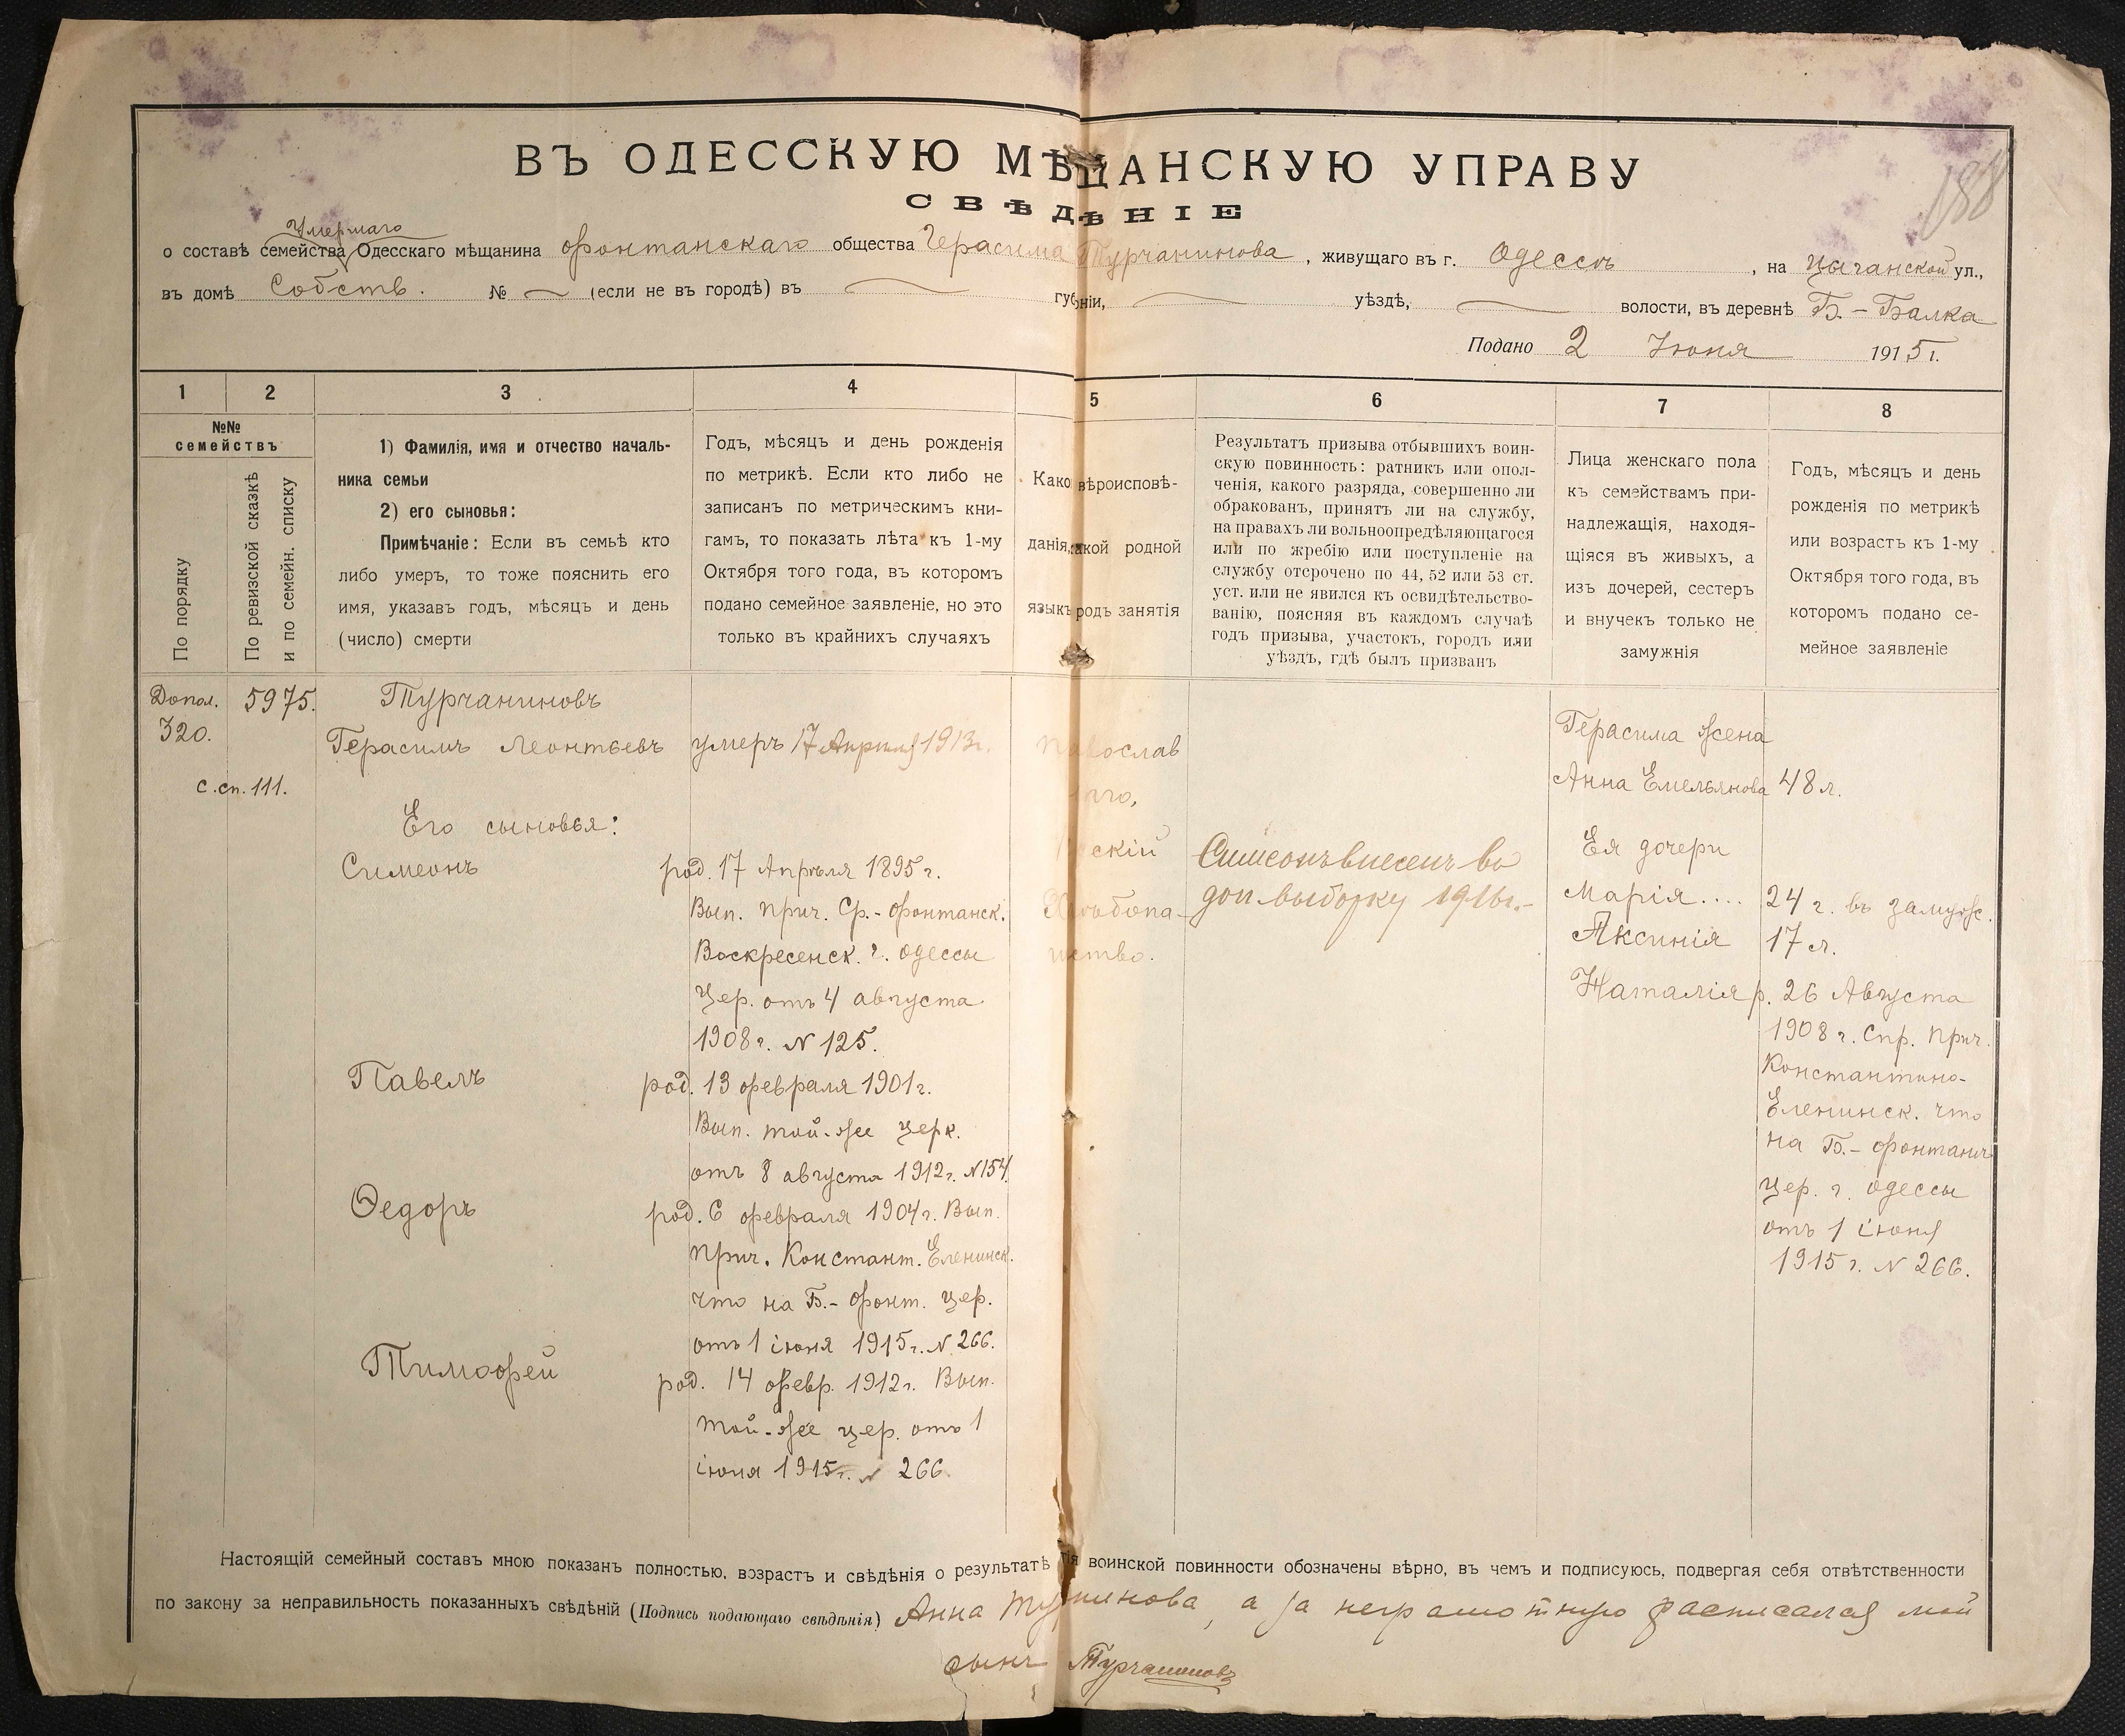 188
ВЪ ОДЕССКУЮ МѢЩАНСКУЮ УПРАВУ
СВѢДѢНІЕ
Умершаго
о составѣ семейства Одесскаго мѣщанина Фонтанскаго общества Герасима Турчанинова, живущаго въ г. Одессѣ, на Цыганской ул.,
въ домѣ Собств. № (если не въ городѣ) въ губніи, уѣздѣ, волости, въ деревнѣ Б.-Балка
Подано 2 Іюня 1915 г.
1 2 3 4 5 6 7 8
№№
семействъ
По порядку
По ревизской сказкѣ
и по семейн. списку
1) Фамилія, имя и отчество началь-
ника семьи
2) его сыновья:
Примѣчаніе: Если въ семьѣ кто
либо умеръ, то тоже пояснить его
имя, указавъ годъ, мѣсяцъ и день
(число) смерти
Годъ, мѣсяцъ и день рожденія
по метрикѣ. Если кто либо не
записанъ по метрическимъ кни-
гамъ, то показать лѣта къ 1-му
Октября того года, въ которомъ
подано семейное заявленіе, но это
только въ крайнихъ случаяхъ
Како вѣроисповѣ-
данія, акой родной
языкъ родъ занятія
Результатъ призыва отбывшихъ воин-
скую повинность: ратникъ или опол-
ченія, какого разряда, совершенно ли
обракованъ, принятъ ли на службу,
на правахъ ли вольноопредѣляющагося
или по жребію или поступленіе на
службу отсрочено по 44, 52 или 53 ст.
уст. или не явился къ освидѣтельство-
ванію, поясняя въ каждомъ случаѣ
годъ призыва, участокъ, городъ или
уѣздъ, гдѣ былъ призванъ
Лица женскаго пола
къ семействамъ при-
надлежащія, находя-
щіяся въ живыхъ, а
изъ дочерей, сестеръ
и внучекъ только не
замужнія
Годъ, мѣсяцъ и день
рожденія по метрикѣ
или возрастъ къ 1-му
Октября того года, въ
которомъ подано се-
мейное заявленіе
Допол.
320.
5975.
с.сп. 111.
Турчаниновъ
Герасимъ Леонтьевъ
Его сыновья:
Симеонъ
Павелъ
Ѳедоръ
Тимофей
умеръ 17 Апрѣля 1913 г.
род. 17 Апрѣля 1895 г.
Вып. прич. Ср.-Фонтанск.
Воскресенск. г. Одессы
Цер. отъ 4 августа
1908 г. N 125.
род. 13 февраля 1901 г.
Вып. той-же церк.
отъ 8 августа 1912 г. N 154.
род. 6 февраля 1904 г. Вып.
прич. Констант. Еленинск.
что на Б.-Фонт. цер.
отъ 1 іюня 1915 г. N 266.
род. 14 февр. 1912 г. Вып.
той-же цер. отъ 1
іюня 1915 г. N 266.
православ
наго,
скій
Хлѣбопа-
шество.
Симеонъ внесенъ во
доп. выборку 1916 г.-
Герасима жена
Анна Емельянова
Ея дочери
Марія....
Аксинія
Наталія
48 л.
24 г. въ замуж.
17 л.
р. 26 Августа
1908 г. Спр. прич.
Константино-
Еленинск. что
на Б.-Фонтанѣ
цер. г. Одессы
отъ 1 іюня
1915 г. N 266.
Настоящій семейный составъ мною показанъ полностью, возрастъ и свѣдѣнія о результатѣ тія воинской повинности обозначены вѣрно, въ чемъ и подписуюсь, подвергая себя отвѣтственности
по закону за неправильность показанныхъ свѣдѣній (Подпись подающаго свѣдѣнія) Анна Турнинова, а за неграмотную расписался мой
сынъ Турчаниновъ